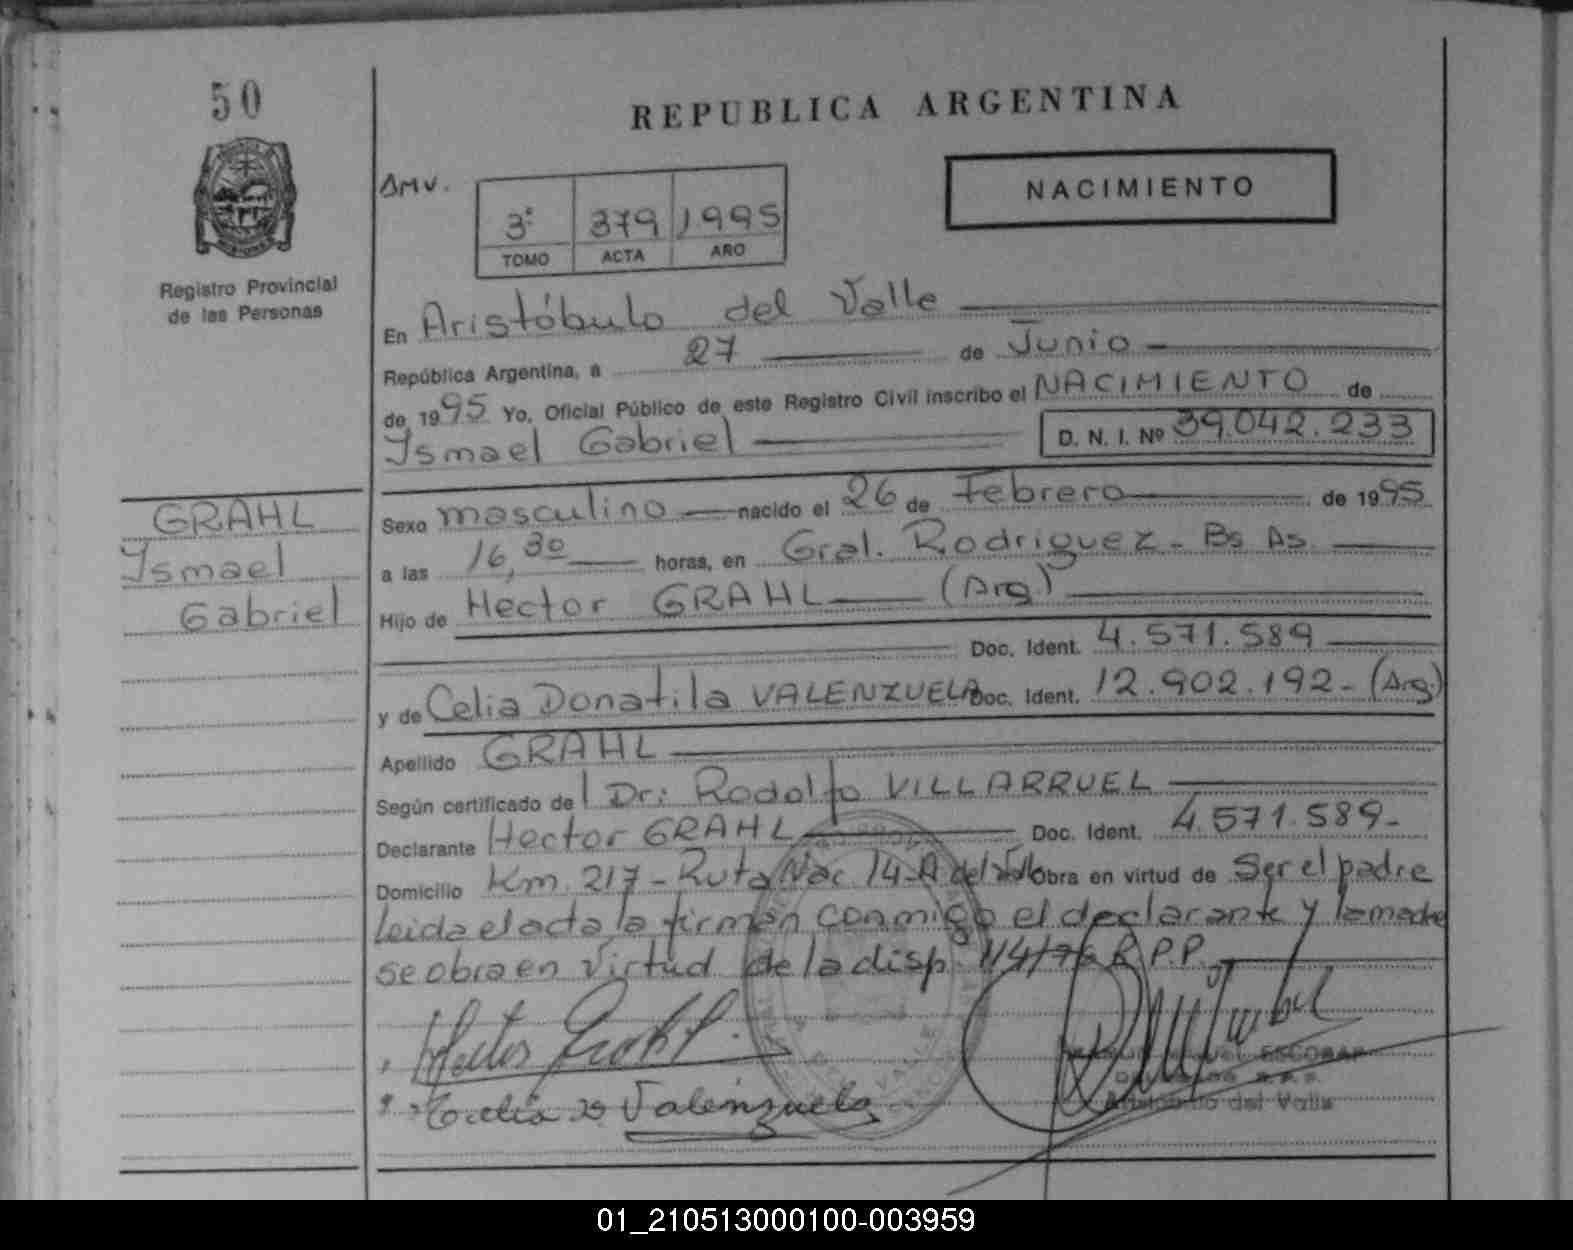 50
REPUBLICA ARGENTINA
NACIMIENTO
AMV.
3º 379 1995
TOMO ACTA AÑO
Registro Provincial
de las Personas
En Aristóbulo del Valle
República Argentina, a 27 de Junio
de 1995 Yo, Oficial Público de este Registro Civil inscribo el NACIMIENTO de
Ysmael Gabriel D. N. I. Nº 39.042.233
GRAHL
Ysmael
Gabriel
Sexo masculino nacido el 26 de Febrero de 1995
a las 16,30 horas, en Gral. Rodriguez - Bs As.
Hijo de Hector GRAHL (Arg)
Doc. Ident. 4.571.589
y de Celia Donatila VALENZUELA Doc. Ident. 12.902.192- (Arg)
Apellido GRAHL
Según certificado del Dr: Rodolfo VILLARRUEL
Declarante Hector GRAHL Doc. Ident. 4.571.589-
Domicilio Km. 217 - Ruta Nac 14-A del Valle Obra en virtud de Ser el padre
leida el acta la firman conmigo el declarante y la madre
se obra en virtud de la disp. 114/76 R.P.P.
Hector Grahl
Celia D Valenzuela
ESCOBAR
Aristóbulo del Valle
01_210513000100-003959